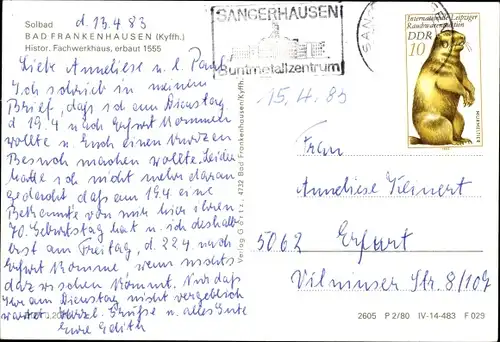 Solbad
BAD FRANKENHAUSEN (Kyffh.)
Histor. Fachwerkhaus, erbaut 1555
d. 13.4.83
Liebe Anneliese u. l. Paul
Ich schrieb in meinem
Brief, daß ich am Dienstag
d. 19.4 nach Erfurt kommen
wollte u. Euch einen kurzen
Besuch machen wollte. Leider
hatte ich nicht mehr daran
gedacht daß am 19.4 eine
Bekannte von mir hier ihren
70. Geburtstag hat u ich deshalb
erst am Freitag, d. 22.4 nach
Erfurt komme, wenn nichts
dazwischen kommt. Nur daß
Ihr am Dienstag nicht vergeblich
wartet. Herzl. Grüße u. alles Gute
Eure Edith
Verlag Görtz, 4732 Bad Frankenhausen/Kyffh.
SANGERHAUSEN
Buntmetallzentrum
Internationale Leipziger
Rauchwarenauktion
DDR
10
MURMELTIER
15.4.83
Frau
Anneliese
5062 Erfurt
Vilniuser Str. 8/109
2605 P 2/80 IV-14-483 F 029